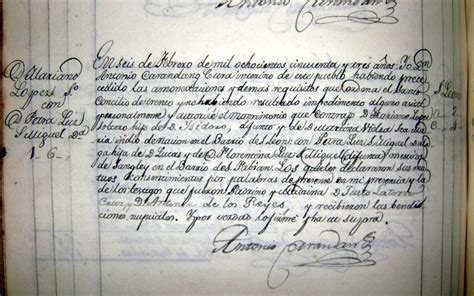 Antonio Carandang
En seis de Febrero de mil ochocientos cincuenta y tres años: Yo Don
Antonio Carandang Cura interino de este pueblo habiendo prece
dido las amonestaciones y demas requisitos que ordena el Santo
Concilio de Trento y no habiendo resultado impedimento alguno asisti
personalmente y autorice el matrimonio que contrajo D. Mariano Lopez
Soltero hijo de D. Isidoro, difunto y de Mariana
india de nacion en el Barrio de Leon con Petra Luz
hija de D. Lucas y de Florencia Luz difunta y mestiza
de Sangley en el Barrio de Julian. Los quales declararon sus mu
tuos consentimientos por palabras de presente en mi presencia y la
de los testigos que fueron Padrino y Madrina D. Justo
Cruz y D. de los Reyes, y recibieron las bendi
ciones nupciales. Y por verdad lo firmé y hace supra.
Antonio Carandang
D. Mariano
Lopez So
con
D. Petra Luz
Da
1. 6.